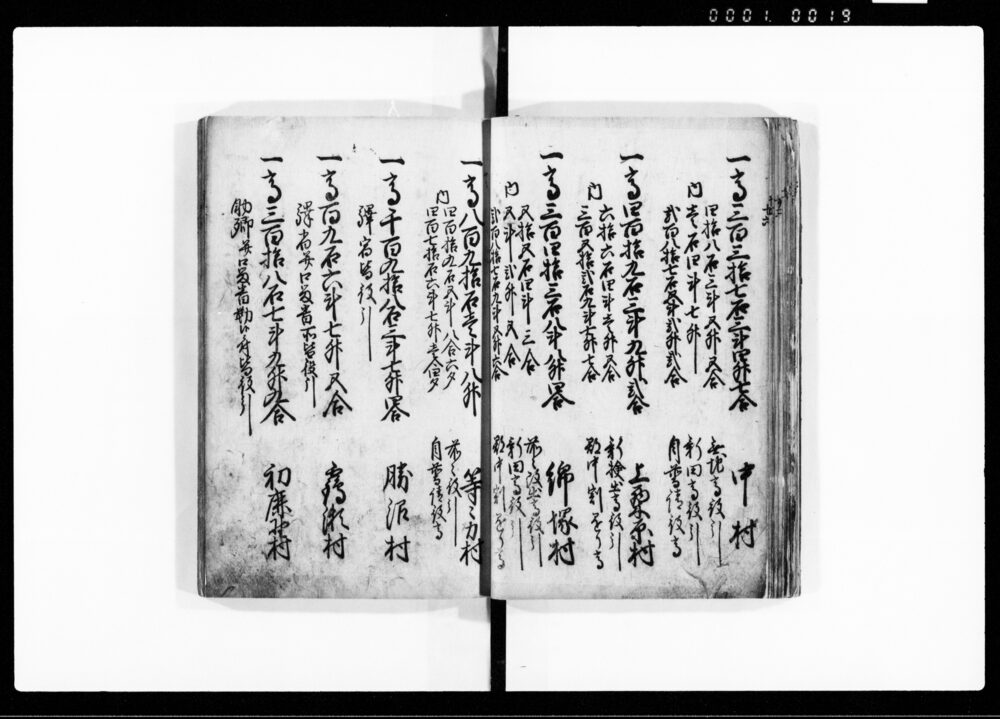 0001 0019
一高三百三拾七石三斗四升七合 中村
内 四拾八石三斗五升五合 無地高役引
壱石四斗七升 新田高役引
弐百八拾七石五斗弐升弐合 自普請役高
一高四百拾九石三斗九升弐合 上栗原村
内 六拾六石四斗壱升五合 高役引
三百五拾弐石九斗七升七合 郡中割
一高三百四拾三石八斗八升四合 綿塚村
内 五拾五石四斗三合 前々改出高役引
五斗弐升五合 新田高役引
弐百八拾七石九斗五升六合 郡中割
一高八百九拾石壱斗八升 等々力村
内 四百拾九石五斗八合六夕 前々役引
四百七拾石六斗七升壱合四夕 自普請役高
一高千百九拾八石三斗七升四合 勝沼村
驛宿皆役引
一高百九石六斗七升五合 鶴瀬村
驛宿并口留番所皆役引
一高三百拾八石七斗九升九合 初鹿野村
助郷并口留番勤候ニ付皆役引